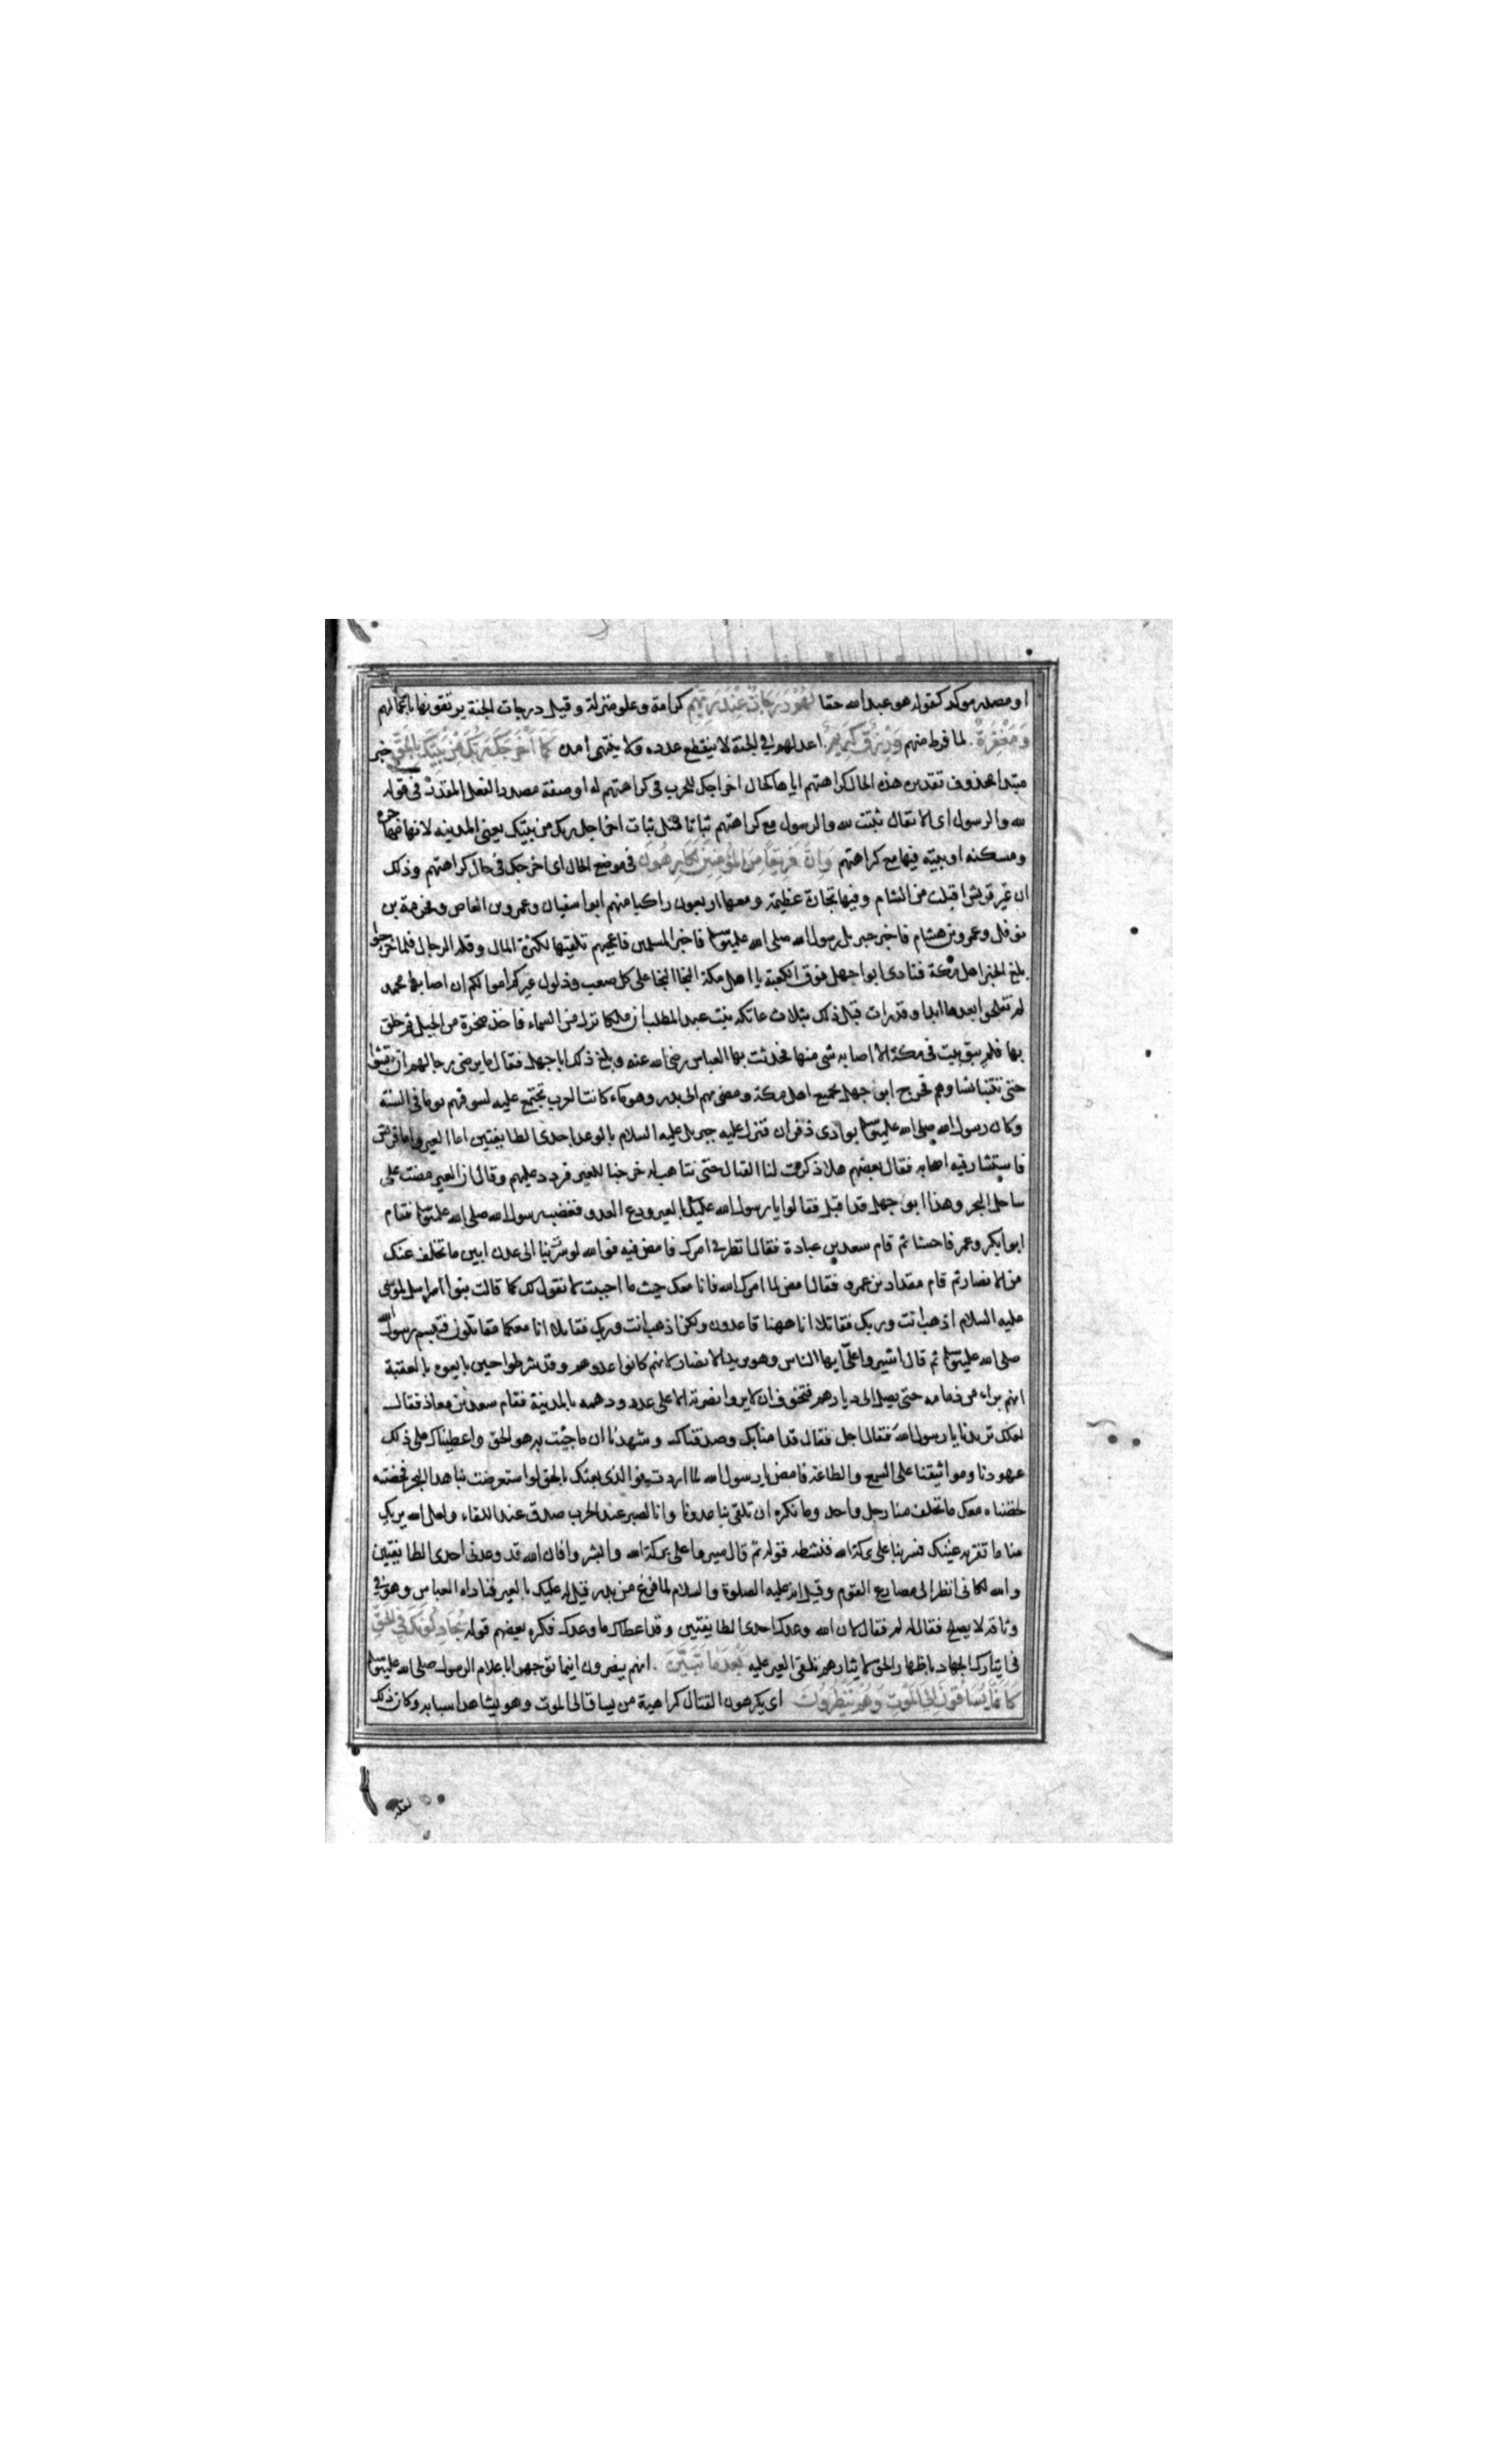 او مصدر موكد كقوله هو عبد الله حقا لهم درجات عند ربهم كرامة وعلو منزلة وقيل درجات الجنة يرتقونها باعمالهم
ومغفرة لما فرط منهم ورزق كريم اعد لهم في الجنة لا ينقطع عدده ولا ينتهي امده كما اخرجك ربك من بيتك بالحق خبر
مبتدا محذوف تقديره هذه الحال كراهتهم اياها كحال اخراجك للحرب في كراهتهم له او صفة مصدر الفعل المقدر في قوله
لله والرسول اي الانفال ثبتت لله والرسول مع كراهتهم ثباتا مثل ثبات اخراجك ربك من بيتك يعني المدينه لانها مهاجره
ومسكنه او بيته فيها مع كراهتهم وان فريقا من المؤمنين لكارهون في موضع الحال اي اخرجك في حال كراهتهم وذلك
ان عير قريش اقبلت من الشام وفيها تجارة عظيمة ومعها اربعون راكبا منهم ابو اسفيان وعمرو بن العاص ومخرمة بن
نوفل وعمرو بن هشام فاخبر جبريل رسول الله صلى الله عليه وسلم فاخبر المسلمين فاعجبهم تلقيها لكثرة المال وقلة الرجال فلما خرجوا
بلغ الخبر اهل مكة فنادى ابو اجهل فوق الكعبة يا اهل مكة النجا النجا على كل صعب وذلول عيركم اموالكم ان اصابها محمد
لم تفلحوا بعدها ابدا وقد رات قبل ذلك بثلاث عاتكه بنت عبد المطلب ان ملكا نزل من السماء فاخذ صخرة من الجبل ثم حلق
بها فلم يبق بيت في مكة الا اصابه شي منها فحدثت بها العباس رضي الله عنه وبلغ ذلك ابا جهل فقال ما يرضى رجالهم ان يتنبئوا
حتى تتنبا نساوهم فخرج ابو جهل بجميع اهل مكة ومضى بهم الى بدر وهو ماء كانت العرب تجتمع عليه لسوقهم يوما في السنة
وكان رسول الله صلى الله عليه وسلم بوادي ذفران فنزل عليه جبريل عليه السلام بالوعد احدى الطايفتين اما العير واما قريش
فاستشار فيه اصحابه فقال بعضهم هلا ذكرت لنا القتال حتى نتاهب له خرجنا للعير فردد عليهم وقال ان العير مضت على
ساحل البحر وهذا ابو جهل قد اقبل فقالوا يا رسول الله عليك بالعير ودع العدو فغضب رسول الله صلى الله عليه وسلم فقام
ابو ابكر وعمر فاحسنا ثم قام سعد بن عبادة فقال انظر في امرك فامض فيه فوالله لو سرت بنا الى عدن ابين ما تخلف عنك
من الانصار ثم قام مقداد بن عمرو فقال امض لما امرك الله فانا معك حيث ما احببت لا نقول لك كما قالت بنوا اسرائيل لموسى
عليه السلام اذهب انت وربك فقاتلا انا ههنا قاعدون ولكن اذهب انت وربك فقاتلا انا معكما مقاتلون فتبسم رسول الله
صلى الله عليه وسلم ثم قال اشيروا علي ايها الناس وهو يريد الانصار لانهم كانوا عددهم وقد شرطوا حين بايعوه بالعقبة
انهم براء من ذمامه حتى يصل الى ديارهم فتخوف ان لا يروا نصرته الا على عدو دهمه بالمدينة فقام سعد بن معاذ فقال
لعلك تريدنا يا رسول الله فقال اجل فقال قد امنا بك وصدقناك وشهدنا ان ما جئت به هو الحق واعطيناك على ذلك
عهودنا ومواثيقنا على السمع والطاعة فامض يا رسول الله لما اردت فوالذي بعثك بالحق لو استعرضت بنا هذا البحر فخضته
لخضناه معك ما تخلف منا رجل واحد وما نكره ان تلقى بنا عدونا وانا لصبر عند الحرب صدق عند اللقاء ولعل الله يريك
منا ما تقر به عينك فسر بنا على بركة الله فنشطه قوله ثم قال سيروا على بركة الله وابشروا فان الله قد وعدني احدى الطايفتين
والله لكاني انظر الى مصارع القوم وقيل انه عليه الصلوة والسلام لما فرغ من بدر قيل له عليك بالعير فناداه العباس وهو في
وثاقه لا يصلح فقال له لم فقال لان الله وعدك احدى الطايفتين وقد اعطاك ما وعدك فكره بعضهم قوله يجادلونك في الحق
في ايثارك الجهاد باظهار الحق لايثارهم تلقي العير عليه بعد ما تبين انهم ينصرون اينما توجهوا باعلام الرسول صلى الله عليه وسلم
كانما يساقون الى الموت وهم ينظرون اي يكرهون القتال كراهية من يساق الى الموت وهو يشاهد اسبابه وكان ذلك
لقلة